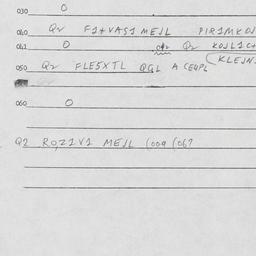 030 0
040 Q2 F1+VAS1 MEJL PIR1MKOJ
041 0 Q2 KOJL1C+
(KLEJN
050 Q2 FLE5XTL QGL A CE4PL
060 0
Q2 ROZ1V1 MEJL (009 (067